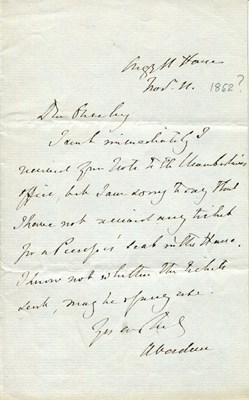 Argyll House
Nov. 11. 1852?
Dear
I sent immediately I
received your Note to the Chamberlain's
office, but I am sorry to say that
I have not received any ticket
for a Peeress's seat in the House.
I know not whether the tickets
sent, may be of any use.
Yrs
Aberdeen